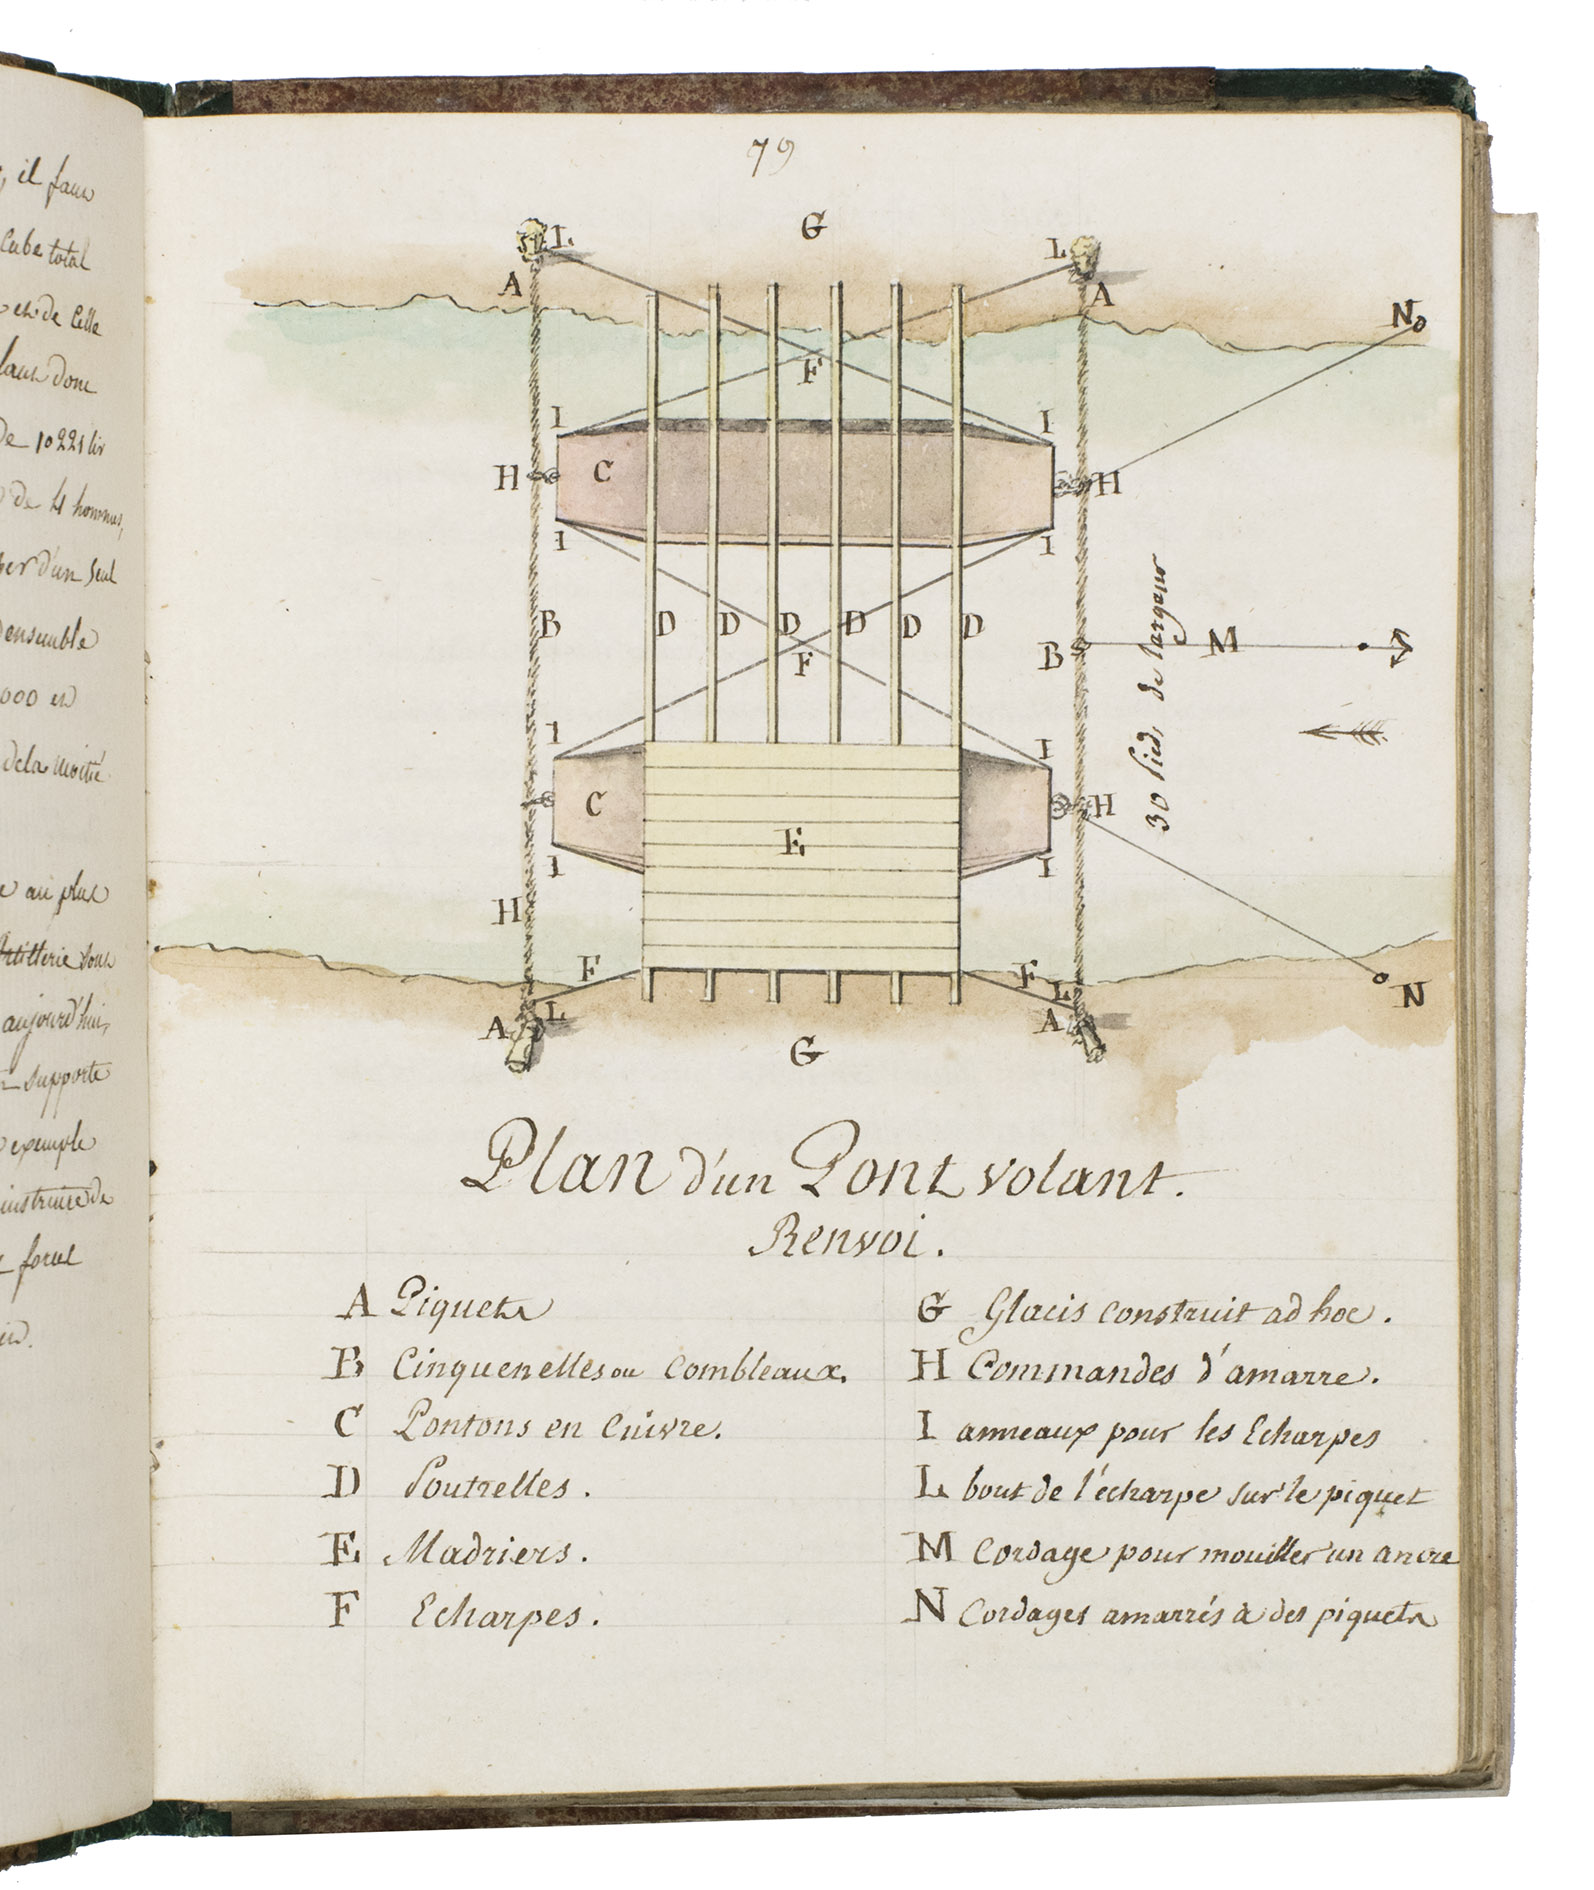 , il faut
Cube total
et de Celle
faut donc
de 10221 liv
de 4 hommes,
d'un Seul
ensemble
000 et
dela moitié
au plus
Artillerie sous
aujourd'hui,
supporte
exemple
instruire de
force
79
G
L L
A A
N
F
I I
H C H
I I
B D D D D D D
B M
F
30 Pieds de largeur
I I
C H
E
I I
H
F F
L L
A A
N
G
Plan d'un Pont volant.
Renvoi.
A Piquets
B Cinquenelles ou Combleaux.
C Pontons en Cuivre.
D Poutrelles.
E Madriers.
F Echarpes.
G Glacis construit ad hoc.
H Commandes d'amarre.
I anneaux pour les Echarpes
L bout de l'écharpe sur le piquet
M Cordage pour mouiller un ancre
N Cordages amarrés à des piquets